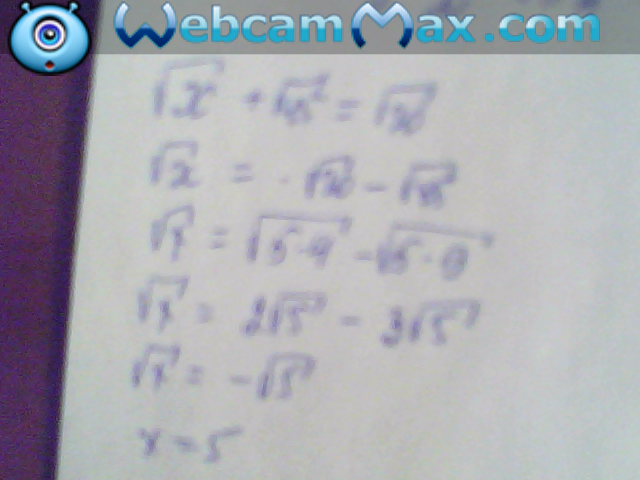 WebcamMax.com
√x + √45 = √20
√x = √20 - √45
√x = √5·4 - √5·9
√x = 2√5 - 3√5
√x = -√5
x = 5